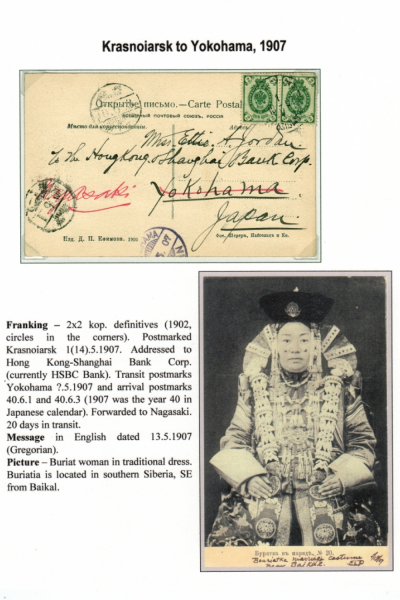 Krasnoiarsk to Yokohama, 1907
Открытое письмо.—Carte Postale
ВСЕМІРНЫЙ ПОЧТОВЫЙ СОЮЗЪ. РОССІЯ
Мѣсто для корреспонденціи. Адресъ
Miss Ettie A. Jordan
To the Hongkong & Shanghai Bank Corp.
Nagasaki
Yokohama
Japan.
Изд. Д. П. Ефимова. 1905
Фот. Шереръ, Набгольцъ и Ко.
Franking – 2x2 kop. definitives (1902,
circles in the corners). Postmarked
Krasnoiarsk 1(14).5.1907. Addressed to
Hong Kong-Shanghai Bank Corp.
(currently HSBC Bank). Transit postmarks
Yokohama ?.5.1907 and arrival postmarks
40.6.1 and 40.6.3 (1907 was the year 40 in
Japanese calendar). Forwarded to Nagasaki.
20 days in transit.
Message in English dated 13.5.1907
(Gregorian).
Picture – Buriat woman in traditional dress.
Buriatia is located in southern Siberia, SE
from Baikal.
Бурятка въ нарядѣ, № 20.
Bouriatka marriage costume
near Baikal